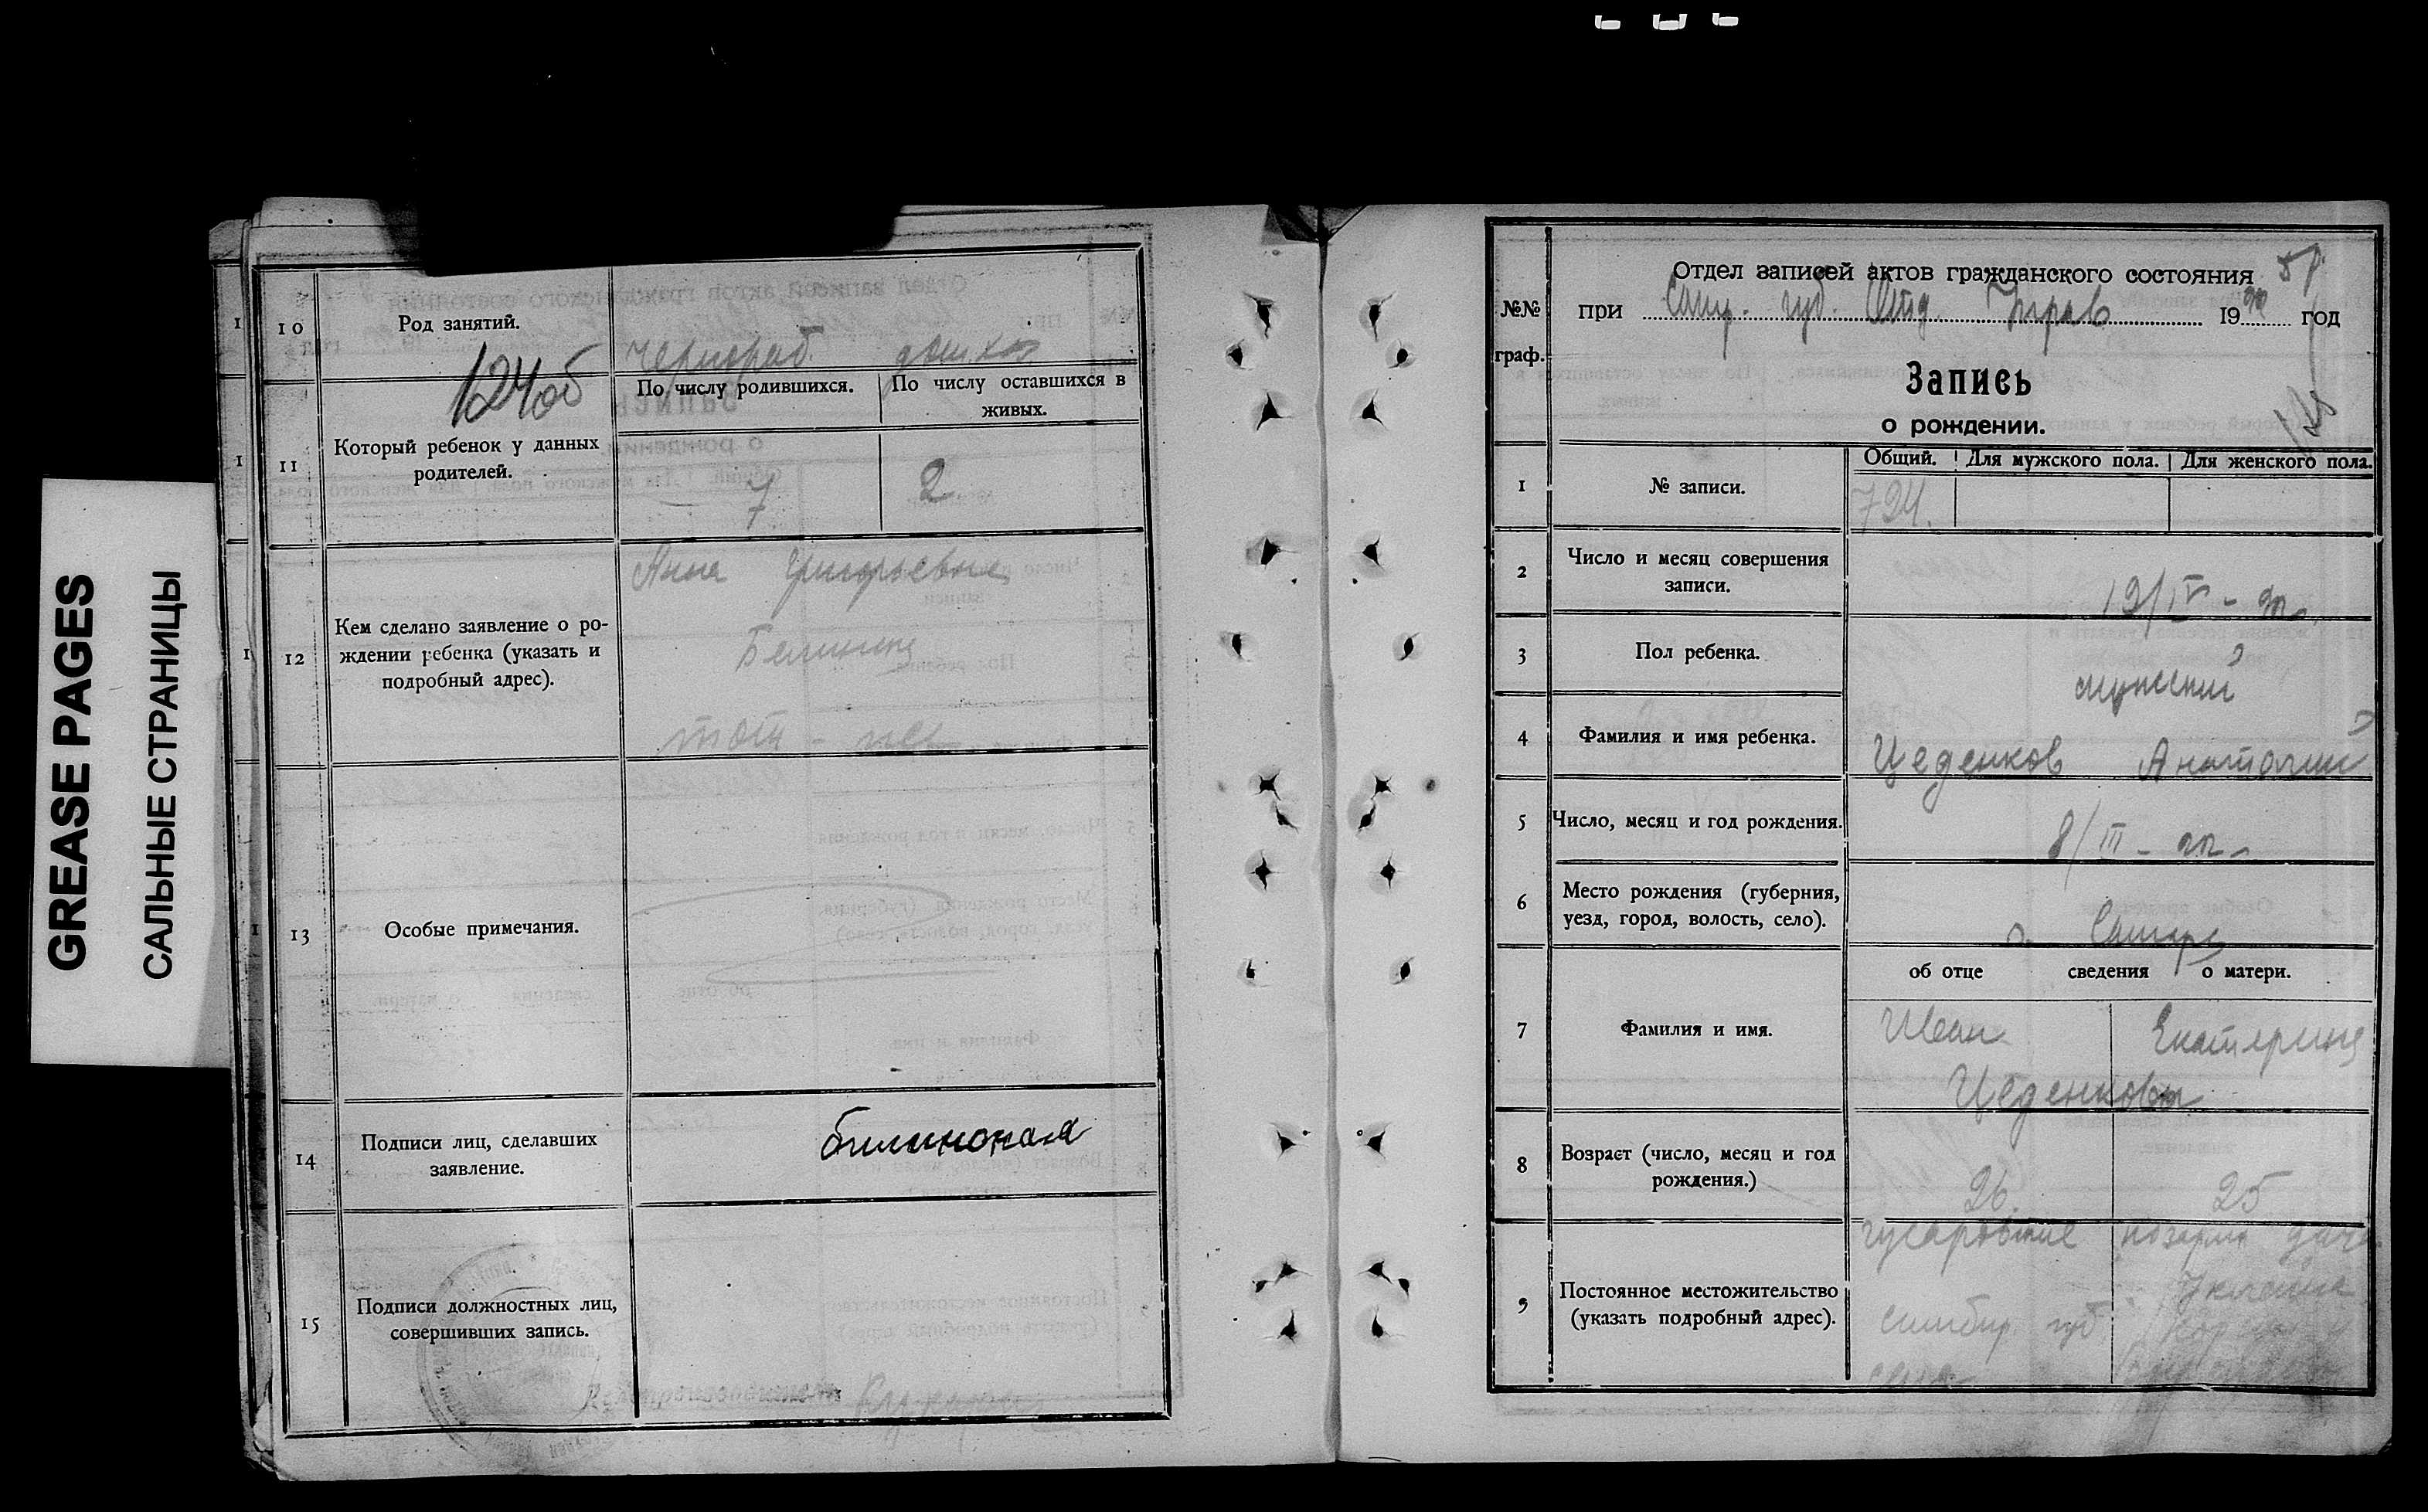 GREASE PAGES
САЛЬНЫЕ СТРАНИЦЫ
10
Род занятий.
Чернораб.
124об
По числу родившихся.
По числу оставшихся в живых.
11
Который ребенок у данных
родителей.
7
2
12
Кем сделано заявление о ро-
ждении ребенка (указать и
подробный адрес).
Анна Григорьевна
13
Особые примечания.
14
Подписи лиц, сделавших
заявление.
15
Подписи должностных лиц,
совершивших запись.
Отдел записей актов гражданского состояния
№№
граф.
при Самр. губ. Отд. Управ 1922 год
Запись
о рождении.
Общий. Для мужского пола. Для женского пола.
1
№ записи.
724.
2
Число и месяц совершения
записи.
12/IV - 22
3
Пол ребенка.
мужской
4
Фамилия и имя ребенка.
Цеденков Анатолий
5
Число, месяц и год рождения.
8/III - 22
6
Место рождения (губерния,
уезд, город, волость, село).
г. Самара
об отце сведения о матери.
7
Фамилия и имя.
Иван Екатерина
Цеденковы
8
Возраст (число, месяц и год
рождения.)
26. 25
9
Постоянное местожительство
(указать подробный адрес).
симбир. губ